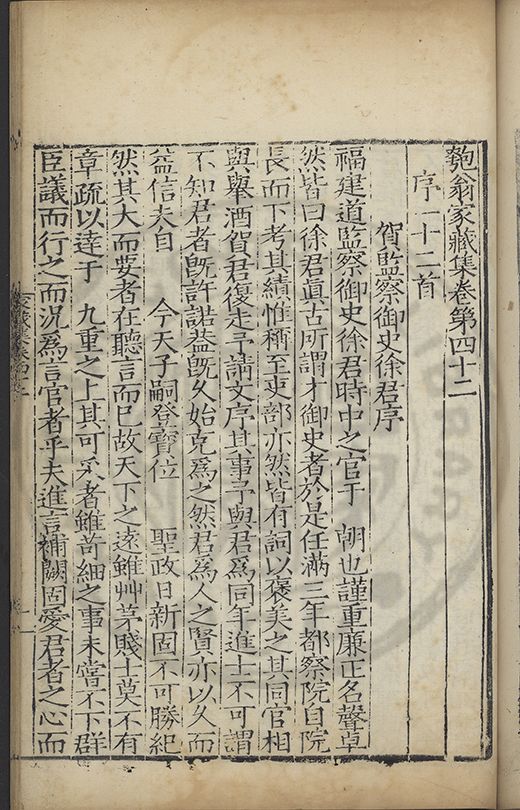 匏翁家藏集卷第四十二
序一十二首
賀監察御史徐君序
福建道監察御史徐君時中之官于 朝也謹重廉正名聲卓
然皆曰徐君眞古所謂才御史者於是任滿三年都察院自院
長而下考其績惟稱至吏部亦然皆有詞以褒美之其同官相
與舉酒賀君復走予請文序其事予與君爲同年進士不可謂
不知君者旣許諾葢旣久始克爲之然君爲人之賢亦以久而
益信夫自 今天子嗣登寶位 聖政日新固不可勝紀
然其大而要者在聽言而已故天下之遠雖艸茅賤士莫不有
章疏以達于 九重之上其可采者雖苛細之事未嘗不下群
臣議而行之而況爲言官者乎夫進言補闕固愛君者之心而